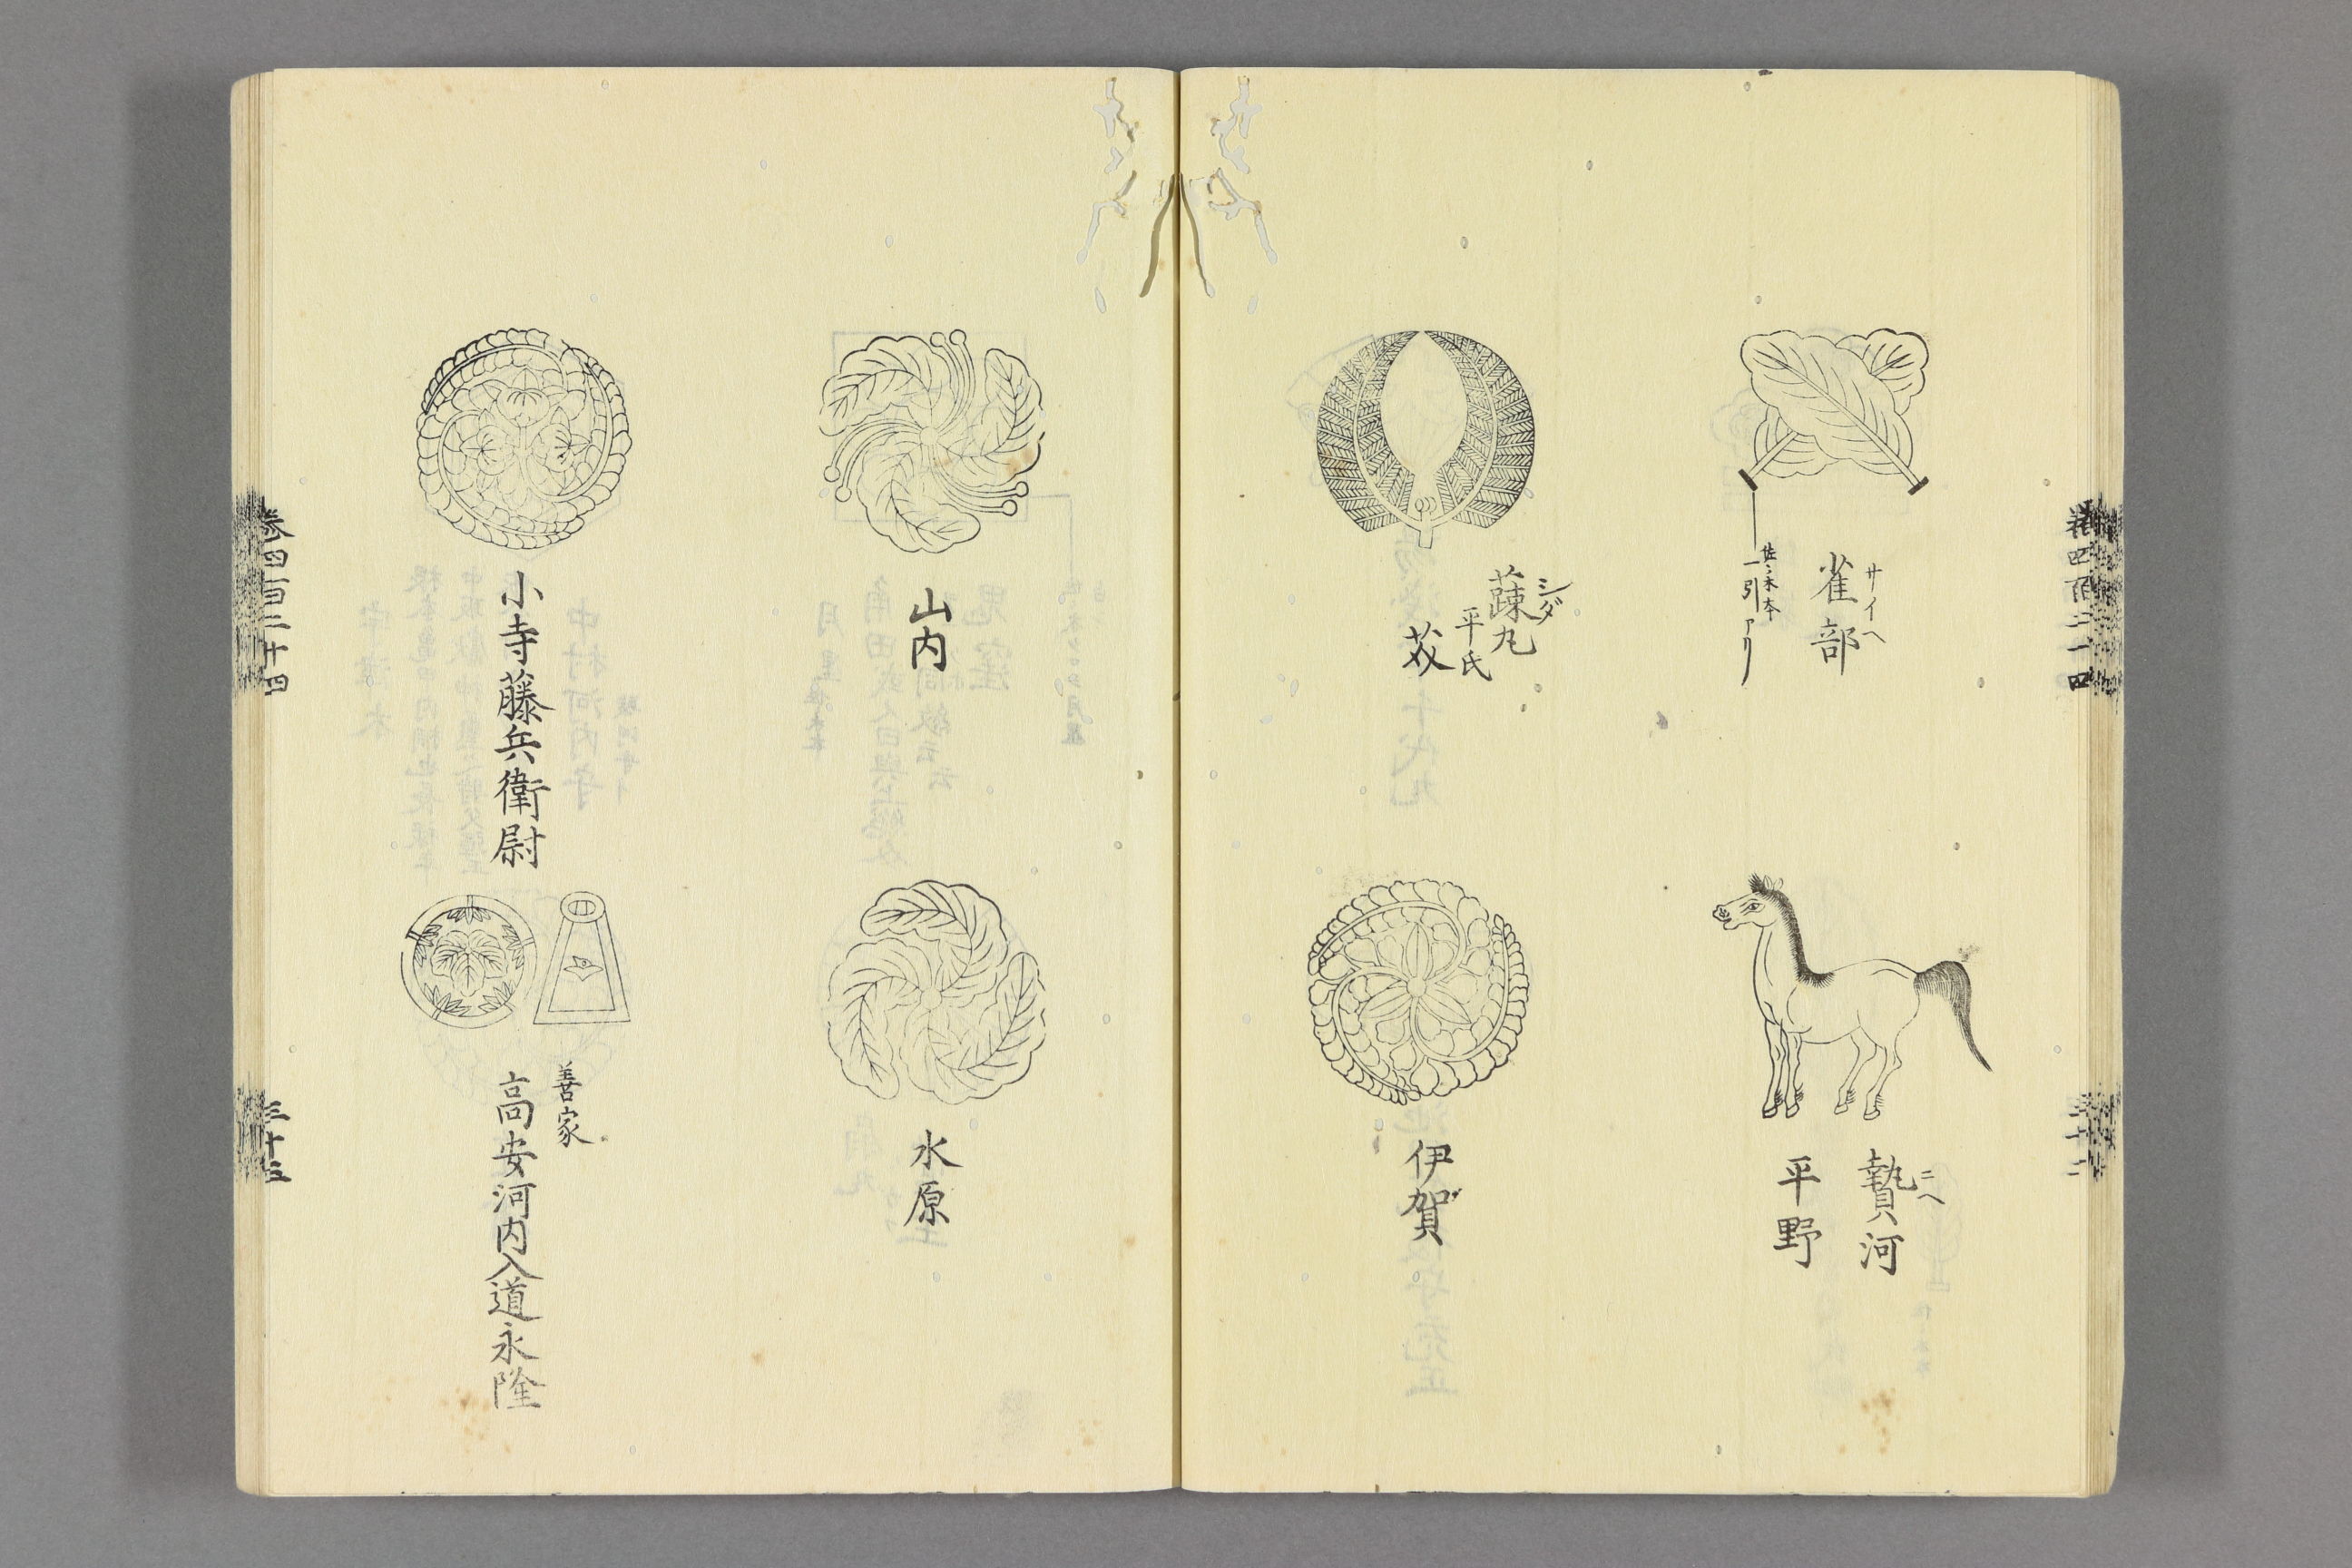 サイヘ
雀部
佐々木本
一引アリ
ニヘ
贄河
平野
シダ
蕀丸
平氏
伊賀
山内
水原
小寺藤兵衛尉
善家
高安河内入道永隆
巻四百二十四
三十三